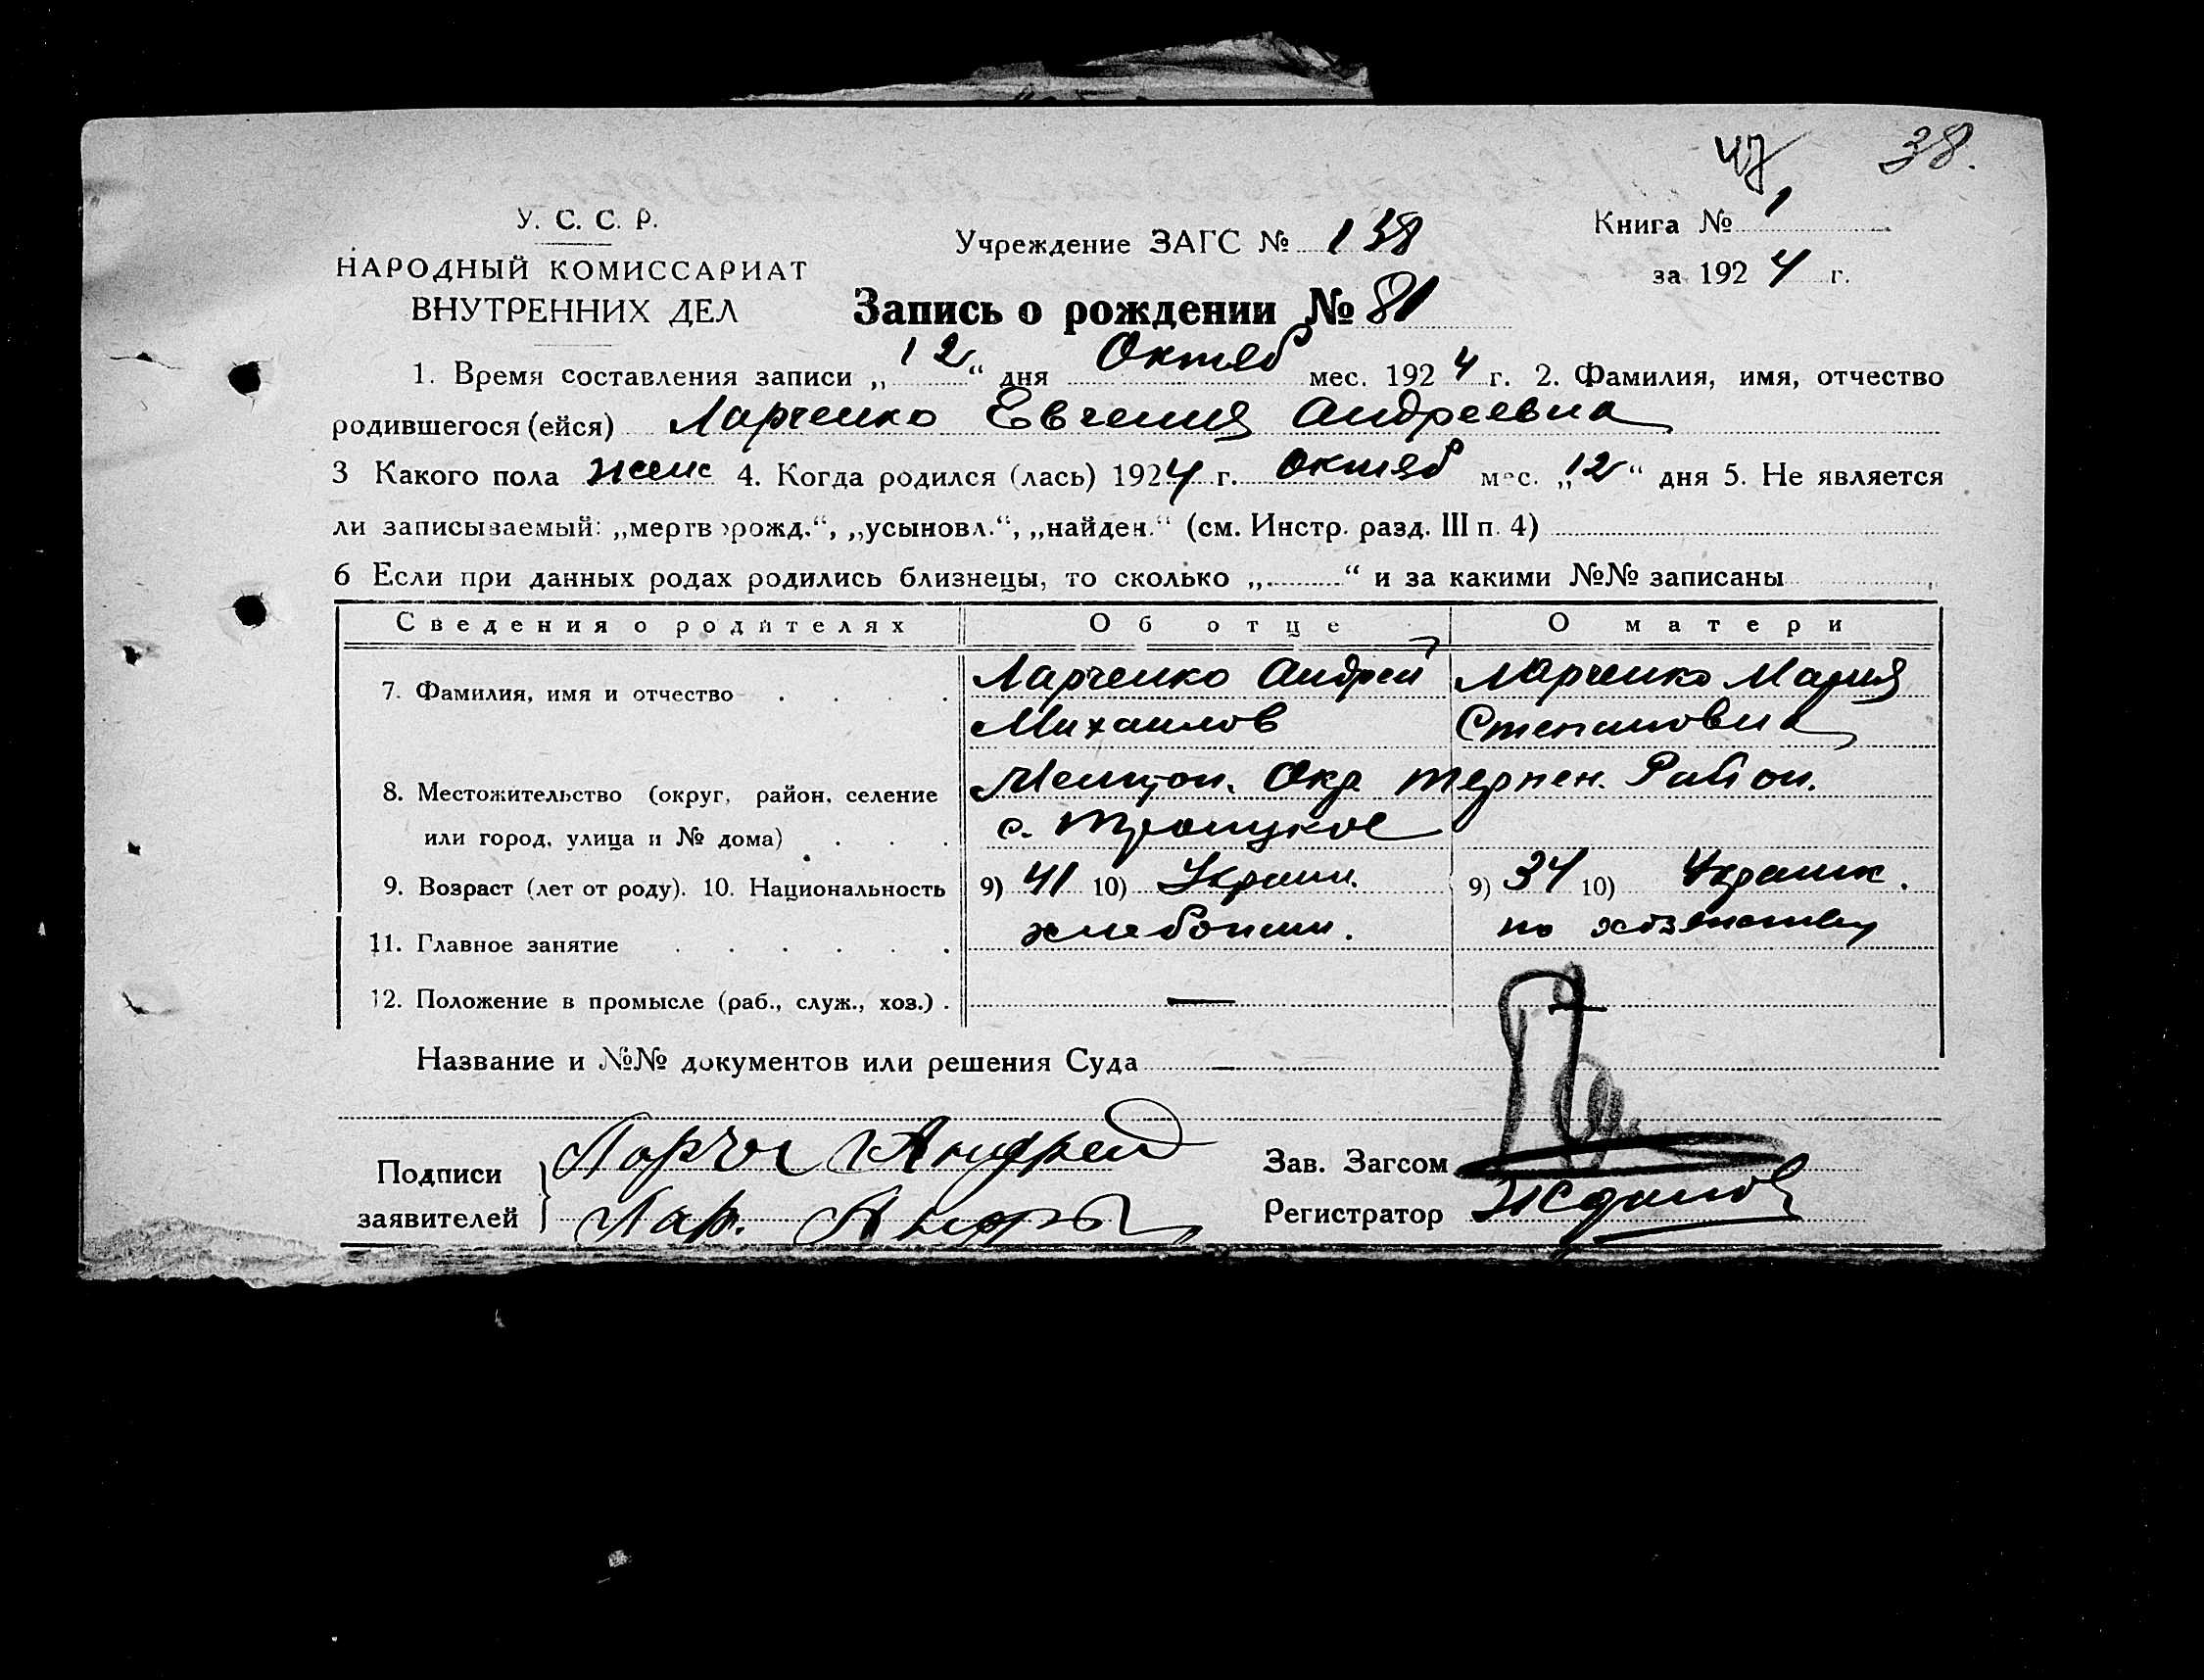 47
38.
У. С. С. Р.
НАРОДНЫЙ КОМИССАРИАТ
ВНУТРЕННИХ ДЕЛ
Учреждение ЗАГС № 138
Книга № 1
за 1924 г.
Запись о рождении № 81
1. Время составления записи „12“ дня Октяб мес. 1924 г. 2. Фамилия, имя, отчество
родившегося (ейся) Ларченко Евгения Андреевна
3 Какого пола женс 4. Когда родился (лась) 1924 г. Октяб мес. „12“ дня 5. Не является
ли записываемый: „мертворожд.“, „усыновл.“, „найден.“ (см. Инстр. разд. III п. 4)
6 Если при данных родах родились близнецы, то сколько „ “ и за какими №№ записаны
Сведения о родителях Об отце О матери
7. Фамилия, имя и отчество Ларченко Андрей Ларченко Мария
Михаилов Степановна
8. Местожительство (округ, район, селение Мелитоп. Окр. Терпен. Район.
или город, улица и № дома) с. Троицкое
9. Возраст (лет от роду). 10. Национальность 9) 41 10) Украин. 9) 34 10) Украинк.
11. Главное занятие хлебопаш. по хозяйству
12. Положение в промысле (раб., служ., хоз.) . — —
Название и №№ документов или решения Суда —
Подписи
заявителей
Андрей
Лар.
Зав. Загсом
Регистратор Жданов